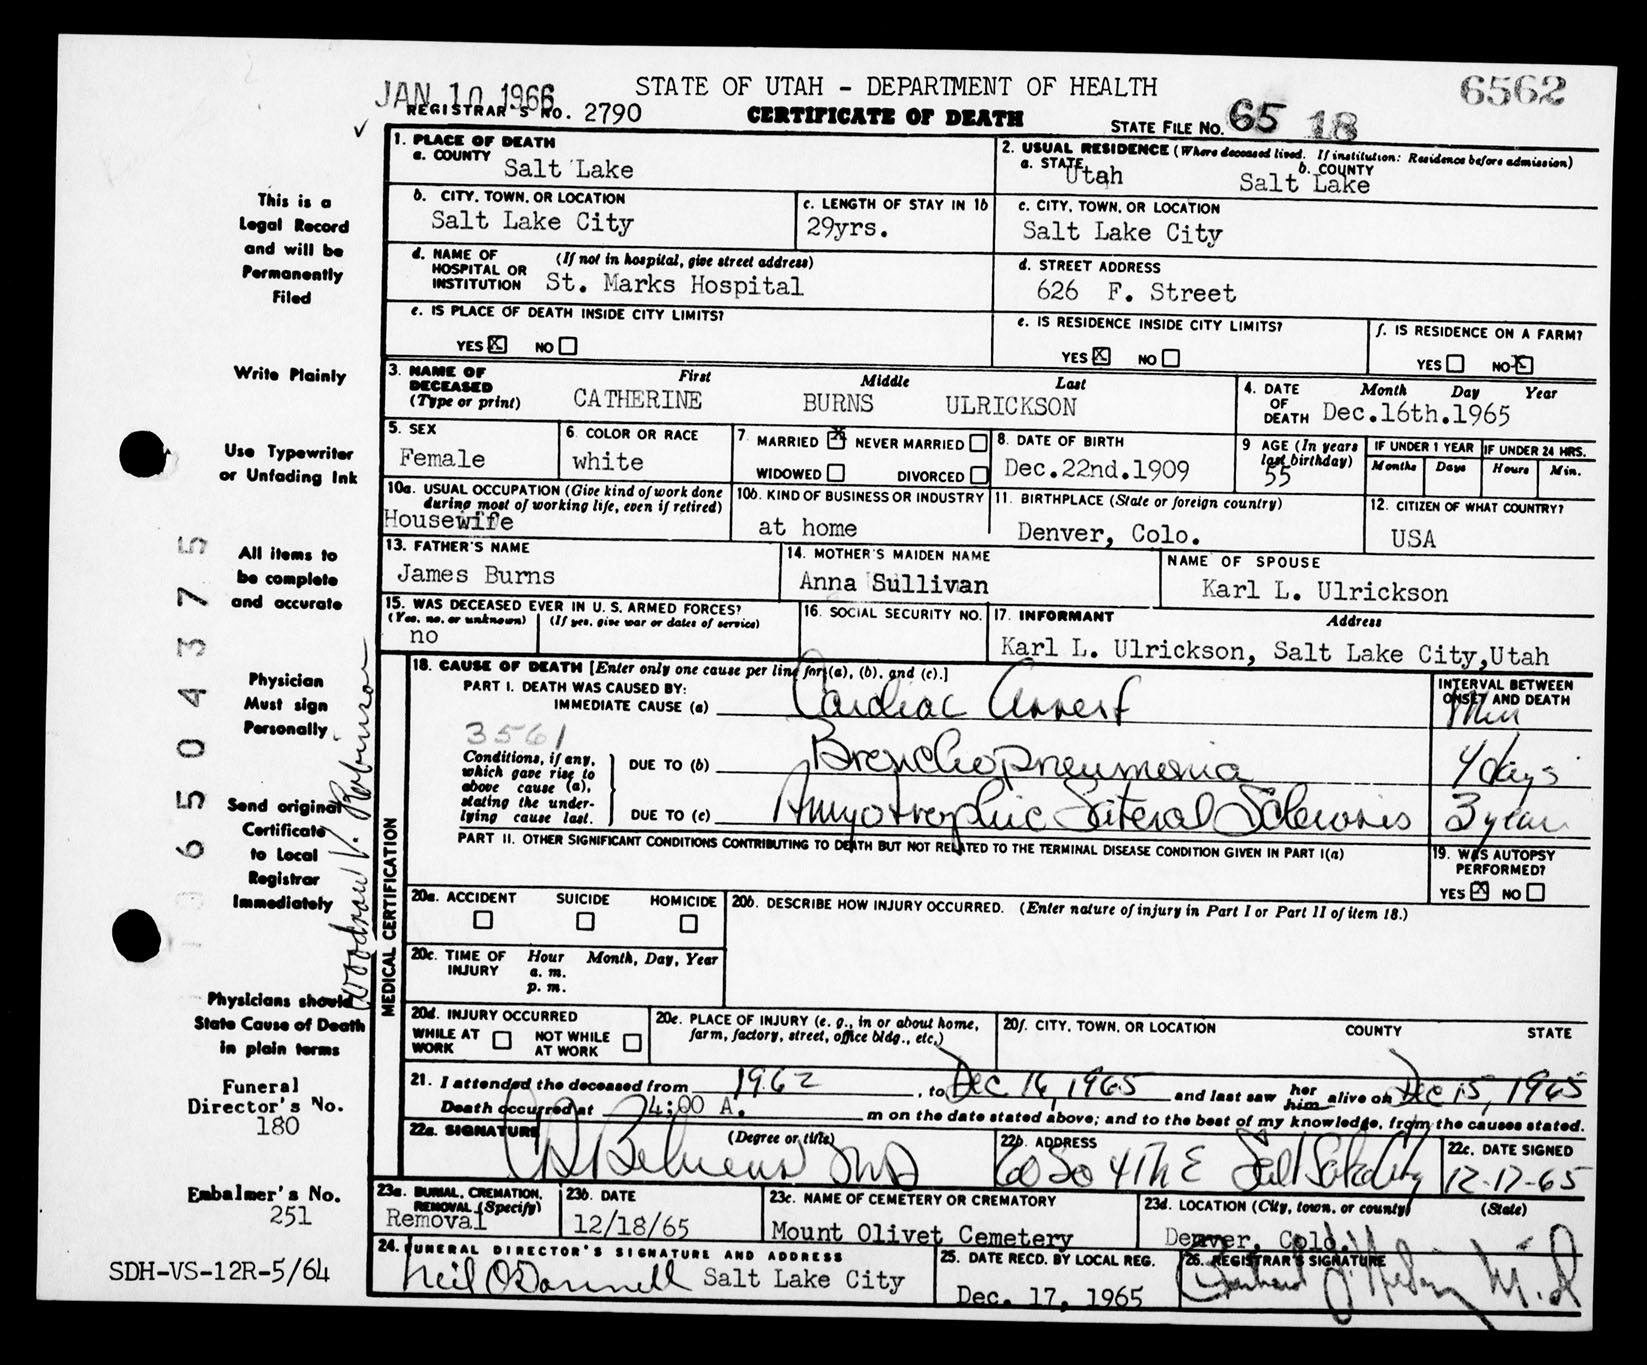 JAN 10 1966
STATE OF UTAH – DEPARTMENT OF HEALTH
6562
REGISTRAR'S NO. 2790
CERTIFICATE OF DEATH
STATE FILE NO. 65 18
1. PLACE OF DEATH
a. COUNTY Salt Lake
2. USUAL RESIDENCE (Where deceased lived. If institution: Residence before admission)
a. STATE Utah b. COUNTY Salt Lake
b. CITY, TOWN, OR LOCATION Salt Lake City
c. LENGTH OF STAY IN 1b 29yrs.
c. CITY, TOWN, OR LOCATION Salt Lake City
d. NAME OF HOSPITAL OR INSTITUTION (If not in hospital, give street address) St. Marks Hospital
d. STREET ADDRESS 626 F. Street
e. IS PLACE OF DEATH INSIDE CITY LIMITS? YES X NO
e. IS RESIDENCE INSIDE CITY LIMITS? YES X NO
f. IS RESIDENCE ON A FARM? YES NO X
3. NAME OF DECEASED (Type or print) First Middle Last
CATHERINE BURNS ULRICKSON
4. DATE OF DEATH Month Day Year
Dec.16th.1965
5. SEX Female
6. COLOR OR RACE white
7. MARRIED X NEVER MARRIED WIDOWED DIVORCED
8. DATE OF BIRTH Dec.22nd.1909
9 AGE (In years last birthday) 55
IF UNDER 1 YEAR Months Days
IF UNDER 24 HRS. Hours Min.
10a. USUAL OCCUPATION (Give kind of work done during most of working life, even if retired) Housewife
10b. KIND OF BUSINESS OR INDUSTRY at home
11. BIRTHPLACE (State or foreign country) Denver, Colo.
12. CITIZEN OF WHAT COUNTRY? USA
13. FATHER'S NAME James Burns
14. MOTHER'S MAIDEN NAME Anna Sullivan
NAME OF SPOUSE Karl L. Ulrickson
15. WAS DECEASED EVER IN U.S. ARMED FORCES?
(Yes, no, or unknown) no (If yes, give war or dates of service)
16. SOCIAL SECURITY NO.
17. INFORMANT Address
Karl L. Ulrickson, Salt Lake City,Utah
MEDICAL CERTIFICATION
18. CAUSE OF DEATH [Enter only one cause per line for (a), (b), and (c).]
PART I. DEATH WAS CAUSED BY:
IMMEDIATE CAUSE (a) Cardiac Arrest
INTERVAL BETWEEN ONSET AND DEATH
Min
3561
Conditions, if any, which gave rise to above cause (a), stating the under-lying cause last.
DUE TO (b) Bronchopneumonia 4 days
DUE TO (c) Amyotrophic Lateral Sclerosis 3 years
PART II. OTHER SIGNIFICANT CONDITIONS CONTRIBUTING TO DEATH BUT NOT RELATED TO THE TERMINAL DISEASE CONDITION GIVEN IN PART I(a)
19. WAS AUTOPSY PERFORMED?
YES X NO
20a. ACCIDENT SUICIDE HOMICIDE
20b. DESCRIBE HOW INJURY OCCURRED. (Enter nature of injury in Part I or Part II of item 18.)
20c. TIME OF INJURY Hour a. m. p. m. Month, Day, Year
20d. INJURY OCCURRED
WHILE AT WORK NOT WHILE AT WORK
20e. PLACE OF INJURY (e. g., in or about home, farm, factory, street, office bldg., etc.)
20f. CITY, TOWN, OR LOCATION COUNTY STATE
21. I attended the deceased from 1962, to Dec 16, 1965 and last saw her him alive on Dec 15, 1965
Death occurred at 4:00 A. m on the date stated above; and to the best of my knowledge, from the causes stated.
22a. SIGNATURE (Degree or title)
22b. ADDRESS 60 So 4th E Salt Lake City
22c. DATE SIGNED 12-17-65
23a. BURIAL, CREMATION, REMOVAL (Specify) Removal
23b. DATE 12/18/65
23c. NAME OF CEMETERY OR CREMATORY Mount Olivet Cemetery
23d. LOCATION (City, town, or county) (State)
Denver, Colo.
24. FUNERAL DIRECTOR'S SIGNATURE AND ADDRESS
Neil O'Donnell Salt Lake City
25. DATE RECD. BY LOCAL REG. Dec. 17, 1965
26. REGISTRAR'S SIGNATURE
This is a
Legal Record
and will be
Permanently
Filed
Write Plainly
Use Typewriter
or Unfading Ink
All items to
be complete
and accurate
Physician
Must sign
Personally
Send original
Certificate
to Local
Registrar
Immediately
Physicians should
State Cause of Death
in plain terms
Funeral
Director's No.
180
Embalmer's No.
251
SDH-VS-12R-5/64
Woodrow V. Robinson
6504375